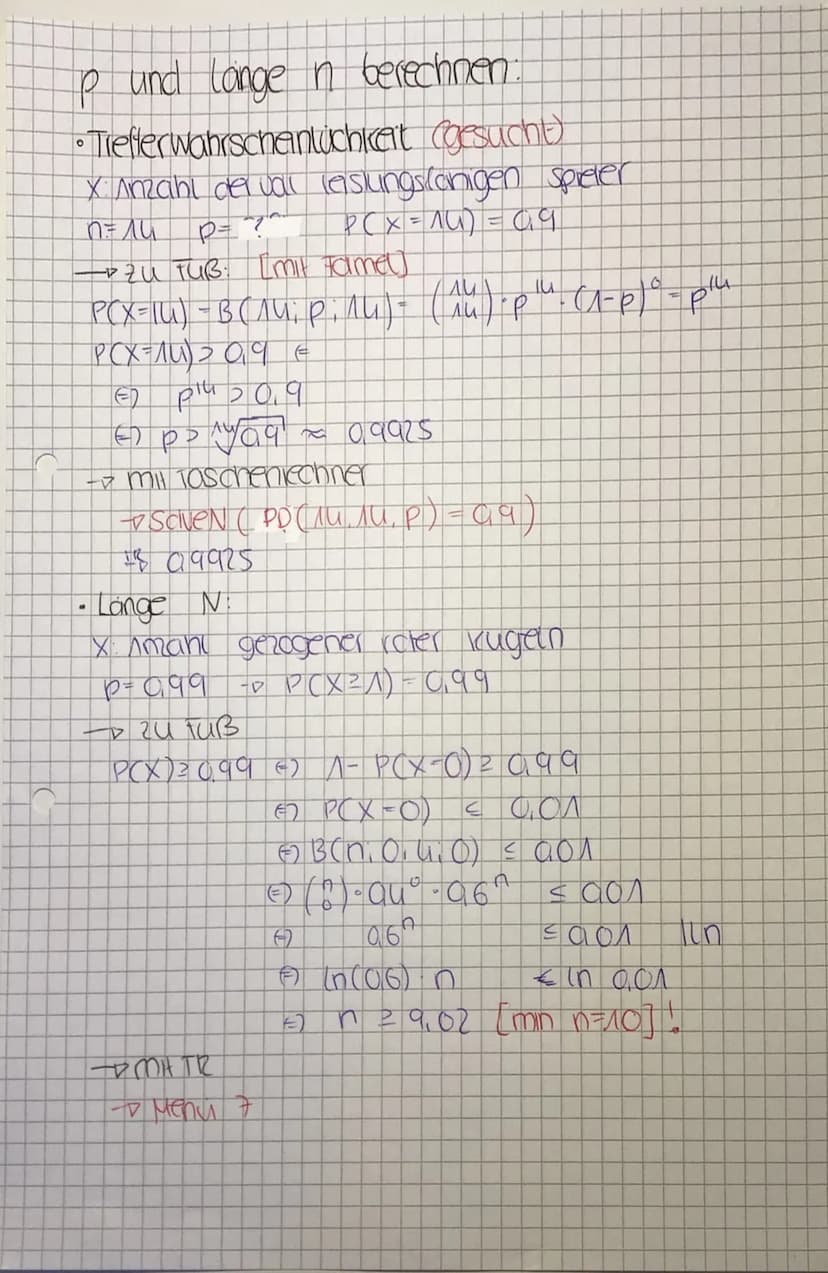 p und Länge n berechnen:
• Trefferwahrscheinlichkeit (gesucht)
X: Anzahl der voll leistungsfähigen Spieler
n=14 p= "?" P(X=14) = 0,9
→ zu Fuß: [mit Formel]
P(X=14) = B(14; p; 14) = (14 14) · p^14 · (1-p)^0 = p^14
P(X=14) > 0,9 ⇔
⇔ p^14 > 0,9
⇔ p > 14√0,9 ≈ 0,9925
→ mit Taschenrechner
→ SolveN( PD(14, 14, p) = 0,9)
0,9925
• Länge N:
X: Anzahl gezogener roter Kugeln
p=0,99 → P(X≥1) = 0,99
→ zu Fuß
P(X)≥0,99 ⇔ 1- P(X=0) ≥ 0,99
⇔ P(X=0) ≤ 0,01
⇔ B(n; 0,4; 0) ≤ 0,01
⇔ (n 0) · 0,4^0 · 0,6^n ≤ 0,01
⇔ 0,6^n ≤ 0,01 | ln
⇔ ln(0,6) · n ≤ ln 0,01
⇔ n ≥ 9,02 [min n=10]!
→ mit TR
→ Menu 7